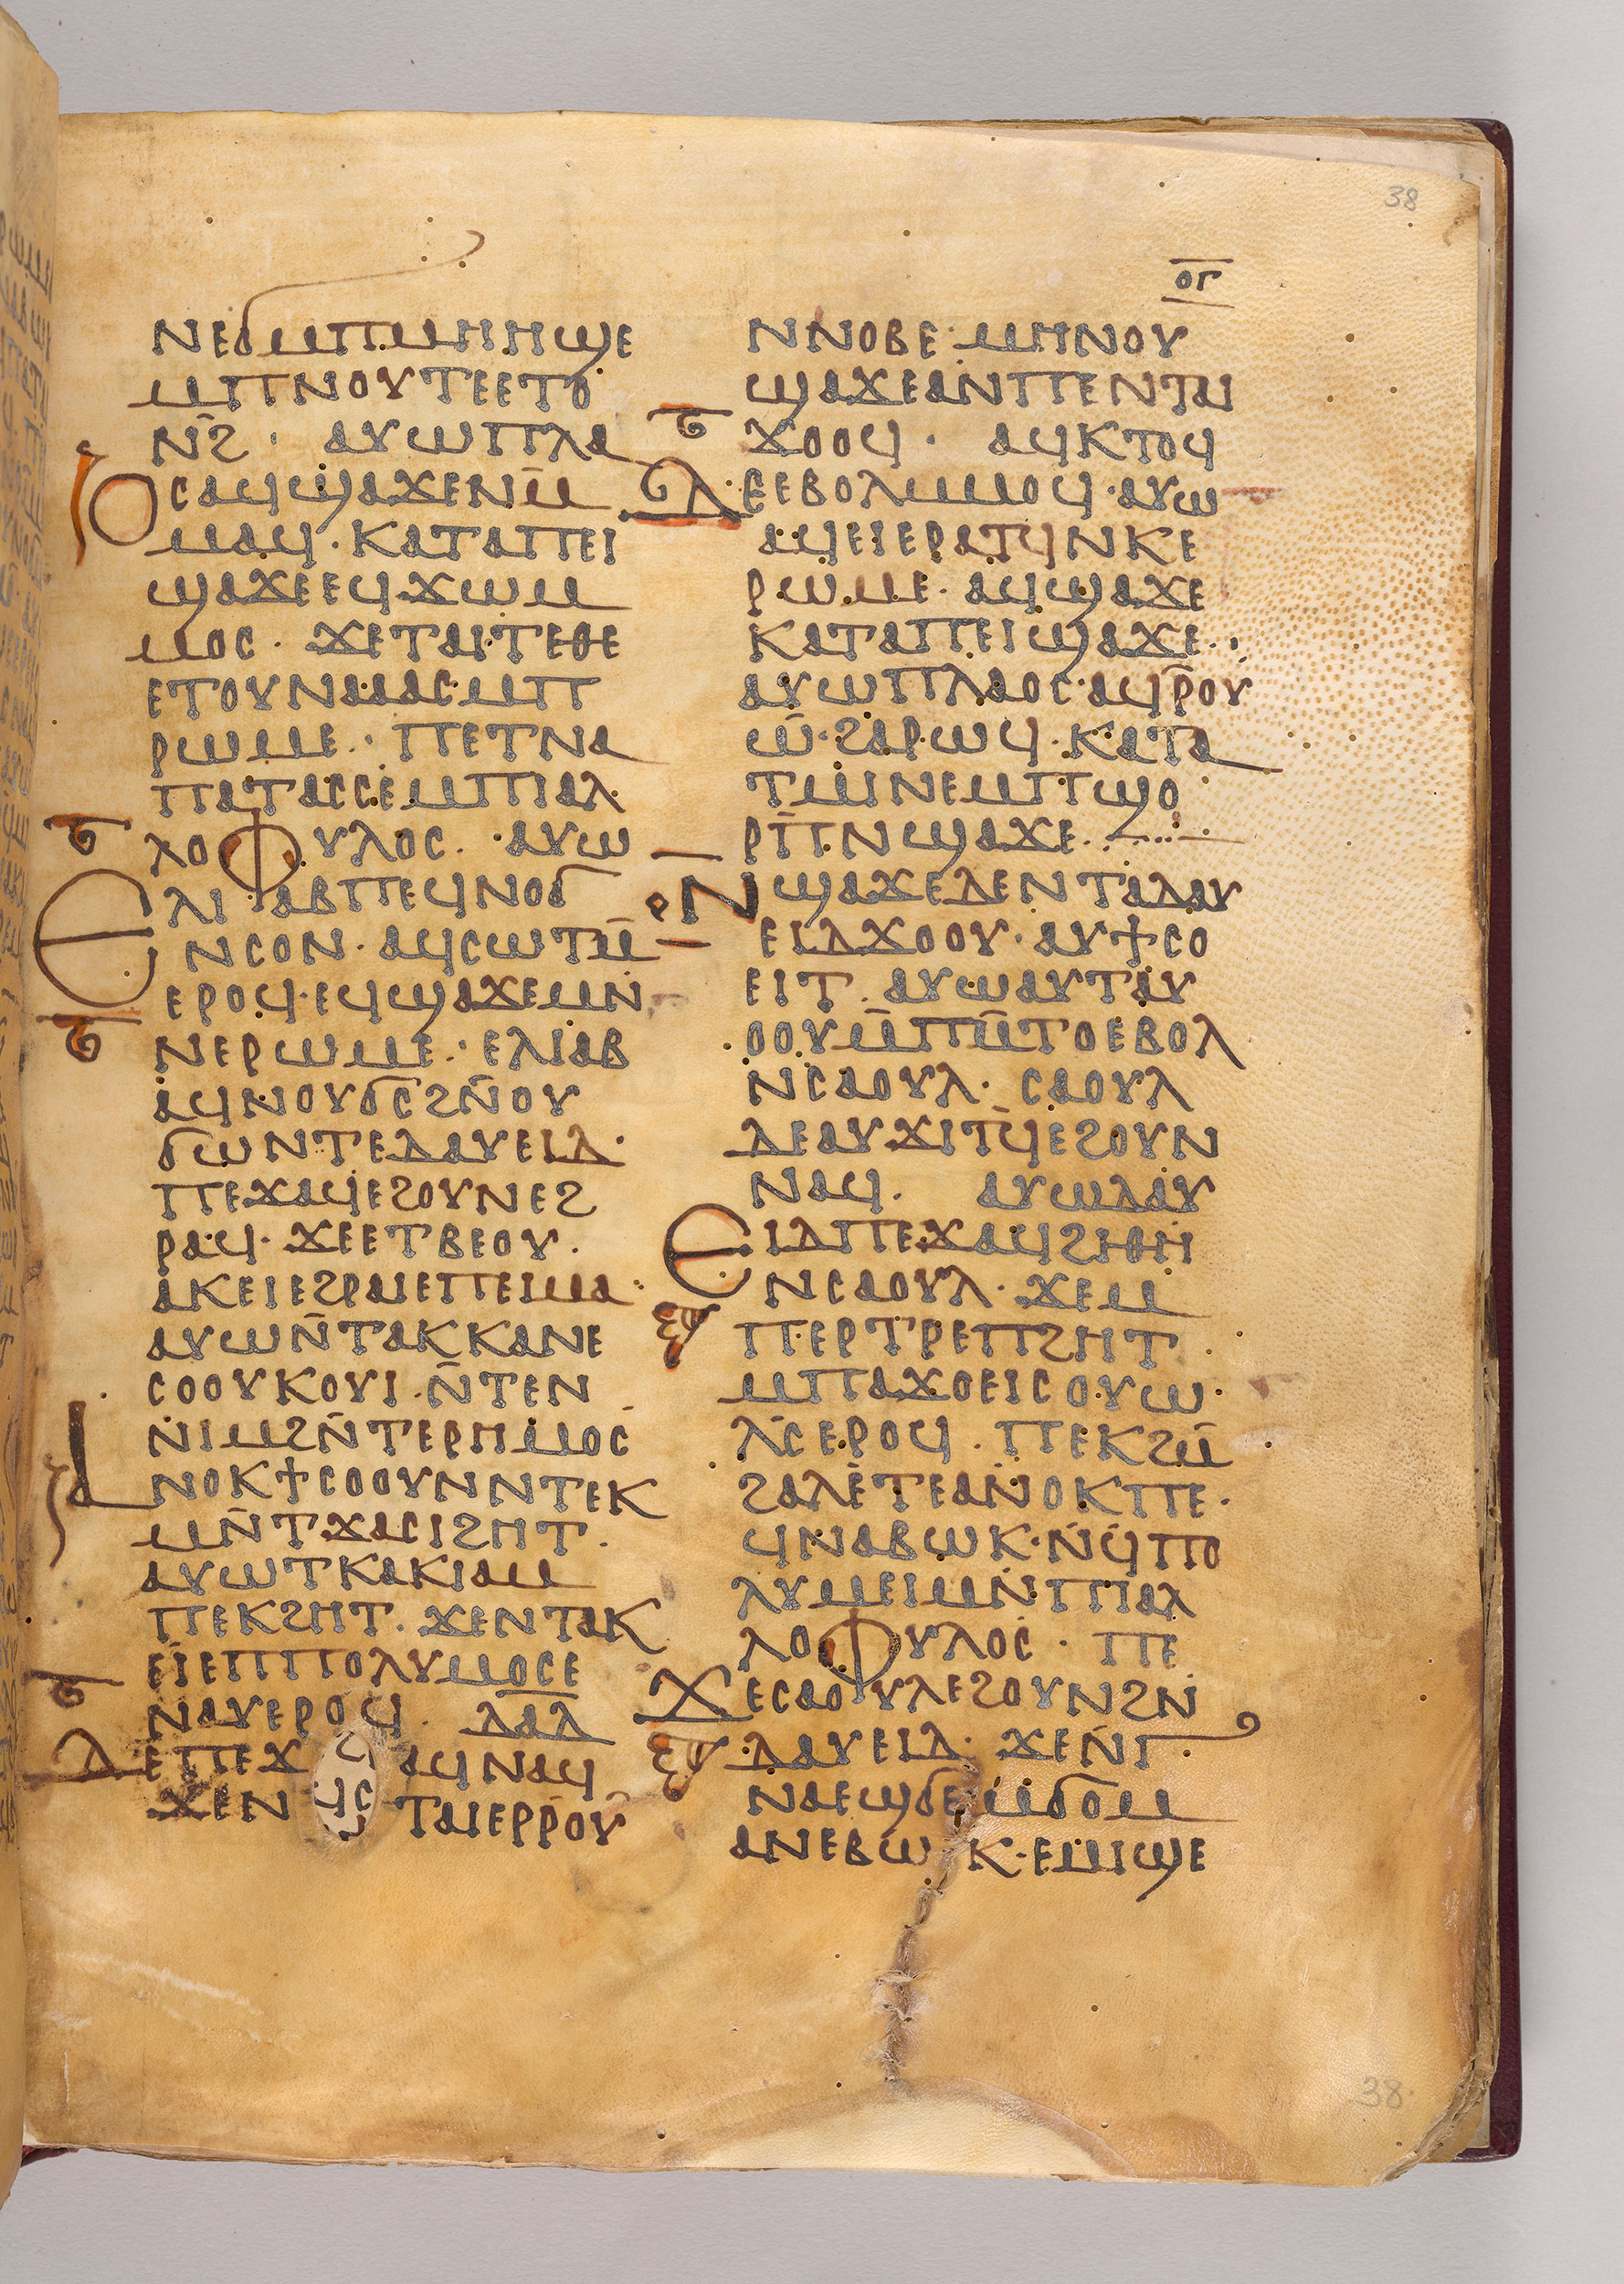 38
ⲟⲅ
ⲛⲉϭⲙⲡⲙⲏⲏϣⲉ
ⲙⲡⲛⲟⲩⲧⲉⲉⲧⲟ
ⲛϩ̄· ⲁⲩⲱⲡⲗⲁ
ⲟⲥⲁϥϣⲁϫⲉⲛⲙ̄
ⲙⲁϥ·ⲕⲁⲧⲁⲡⲉⲓ
ϣⲁϫⲉⲉϥϫⲱⲙ
ⲙⲟⲥ· ϫⲉⲧⲁⲓⲧⲉⲑⲉ
ⲉⲧⲟⲩⲛⲁⲁⲁⲥⲙⲡ
ⲣⲱⲙⲉ· ⲡⲉⲧⲛⲁ
ⲡⲁⲧⲁⲥⲥⲉⲙⲡⲓⲁⲗ
ⲗⲟⲫⲩⲗⲟⲥ· ⲁⲩⲱ
ⲉⲗⲓⲁⲃⲡⲉϥⲛⲟϭ
ⲛⲥⲟⲛ·ⲁϥⲥⲱⲧⲙ̄
ⲉⲣⲟϥ·ⲉϥϣⲁϫⲉⲙⲛ
ⲛⲉⲣⲱⲙⲉ· ⲉⲗⲓⲁⲃ
ⲁϥⲛⲟⲩϭⲥϩⲛ̄ⲟⲩ
ϭⲱⲛⲧⲉⲇⲁⲩⲉⲓⲇ·
ⲡⲉϫⲁϥⲉϩⲟⲩⲛⲉϩ
ⲣⲁϥ· ϫⲉⲉⲧⲃⲉⲟⲩ·
ⲁⲕⲉⲓⲉϩⲣⲁⲓⲉⲡⲉⲓⲙⲁ·
ⲁⲩⲱⲛ̄ⲧⲁⲕⲕⲁⲛⲉ
ⲥⲟⲟⲩⲕⲟⲩⲓ·ⲛ̄ⲧⲉⲛ
ⲛⲓⲙϩⲛ̄ⲧⲉⲣⲏⲙⲟⲥ
ⲁⲛⲟⲕϯⲥⲟⲟⲩⲛⲛⲧⲉⲕ
ⲙⲛ̄ⲧϫⲁⲥⲓϩⲏⲧ·
ⲁⲩⲱⲧⲕⲁⲕⲓⲁⲙ
ⲡⲉⲕϩⲏⲧ· ϫⲉⲛⲧⲁⲕ
ⲉⲓⲉⲡⲡⲟⲗⲩⲙⲟⲥⲉ
ⲛⲁⲩⲉⲣⲟϥ· ⲇⲁⲇ
ⲇⲉⲡⲉϫⲁϥⲛⲁϥ
ϫⲉⲛⲧⲁⲓⲉⲣⲣⲟⲩ
ⲛⲛⲟⲃⲉ·ⲙⲏⲛⲟⲩ
ϣⲁϫⲉⲁⲛⲡⲉⲛⲧⲁⲓ
ϫⲟⲟϥ· ⲁϥⲕⲧⲟϥ
ⲇⲉⲉⲃⲟⲗⲙⲙⲟϥ·ⲁⲩⲱ
ⲁϥⲉⲓⲉⲣⲁⲧϥⲛⲕⲉ
ⲣⲱⲙⲉ· ⲁϥϣⲁϫⲉ
ⲕⲁⲧⲁⲡⲉⲓϣⲁϫⲉ·
ⲁⲩⲱⲡⲗⲁⲟⲥ·ⲁϥⲣ̄ⲟⲩ
ⲱ·ϩⲁⲣⲱϥ·ⲕⲁⲧⲁ
ⲧⲙⲓⲛⲉⲙⲡϣⲟ
ⲣⲡ̄ⲛϣⲁϫⲉ·
ⲛϣⲁϫⲉⲇⲉⲛⲧⲁⲇⲁⲩ
ⲉⲓⲇϫⲟⲟⲩ·ⲁⲩϯⲥⲟ
ⲉⲓⲧ· ⲁⲩⲱⲁⲩⲧⲁⲩ
ⲟⲟⲩⲙ̄ⲡⲙ̄ⲧⲟⲉⲃⲟⲗ
ⲛⲥⲁⲟⲩⲗ· ⲥⲁⲟⲩⲗ
ⲇⲉⲁⲩϫⲓⲧϥⲉϩⲟⲩⲛ
ⲛⲁϥ· ⲁⲩⲱⲇⲁⲩ
ⲉⲓⲇⲡⲉϫⲁϥϩⲏⲑⲏ
ⲛⲥⲁⲟⲩⲗ· ϫⲉⲙ
ⲡⲉⲣⲧⲣⲉⲡϩⲏⲧ
ⲙⲡⲁϫⲟⲉⲓⲥⲟⲩⲱ
ⲗⲥⲉⲣⲟϥ· ⲡⲉⲕϩⲙ̄
ϩⲁⲗⲉⲧⲉⲁⲛⲟⲕⲡⲉ·
ϥⲛⲁⲃⲱⲕ·ⲛϥⲡⲟ
ⲗⲩⲙⲉⲓⲙⲛⲡⲓⲁⲗ
ⲗⲟⲫⲩⲗⲟⲥ· ⲡⲉ
ϫⲉⲥⲁⲟⲩⲗⲉϩⲟⲩⲛϩⲛ
ⲇⲁⲩⲉⲓⲇ· ϫⲉⲛⲅ
ⲛⲁⲉϣϭⲉⲙϭⲟⲙ
ⲁⲛⲉⲃⲱⲕ·ⲉⲙⲓϣⲉ
38